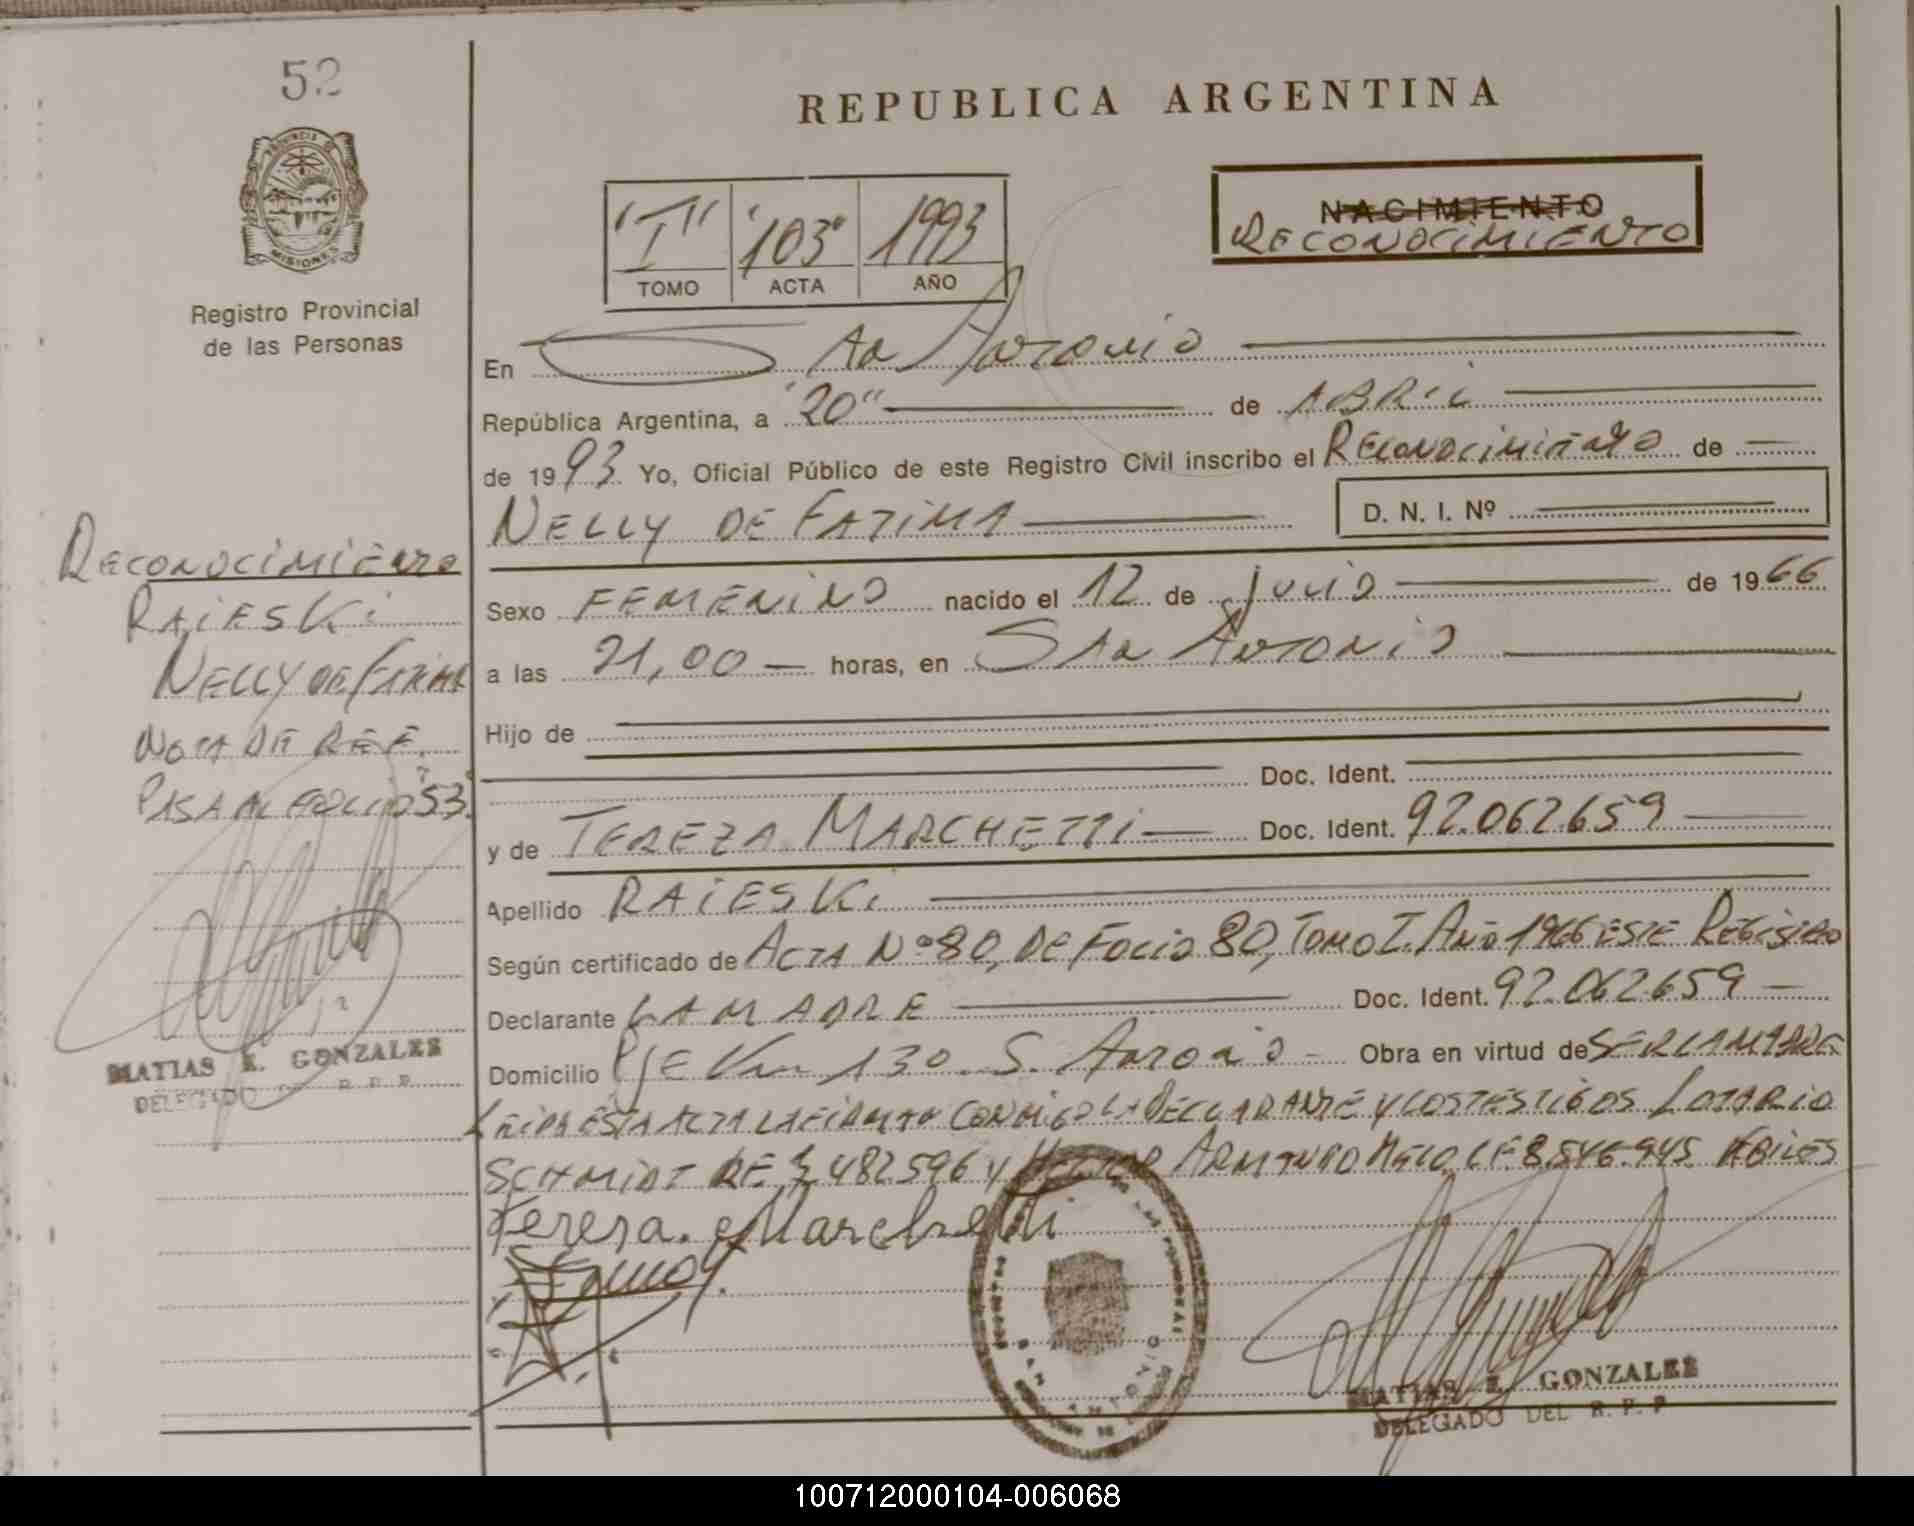 52
REPUBLICA ARGENTINA
PROVINCIA DE
MISIONES
Registro Provincial
de las Personas
"I" "103" 1993
TOMO ACTA AÑO
NACIMIENTO
RECONOCIMIENTO
En San Antonio
República Argentina, a "20" de ABRIL
de 1993. Yo, Oficial Público de este Registro Civil inscribo el RECONOCIMIENTO de
NELLY DE FATIMA D. N. I. Nº
Sexo FEMENINO nacido el 12 de Julio de 1966
a las 21,00 horas, en SAN ANTONIO
Hijo de
Doc. Ident.
y de TEREZA MARCHETTI Doc. Ident. 92.062.659
Apellido RAIESKI
Según certificado de ACTA Nº 80, DE FOLIO 80, TOMO I. AÑO 1966 ESTE REGISTRO
Declarante LA MADRE Doc. Ident. 92.062659
Domicilio Pje Km 130 S. Antonio Obra en virtud de SER LA MADRE
LEIDA ESTA ACTA LA FIRMAN CONMIGO LA DECLARANTE Y LOS TESTIGOS LOTARIO
SCHMIDT 482.596 y ARMINDO MELO LE 8.546.945. HABILES
Tereza. Marchetti
MATIAS E. GONZALEZ
DELEGADO DEL R. P. P
RECONOCIMIENTO
RAIESKI
NELLY DE FATIMA
NOTA DE REF.
PASA AL FOLIO 53.
MATIAS E. GONZALEZ
DELEGADO R. P. P.
100712000104-006068